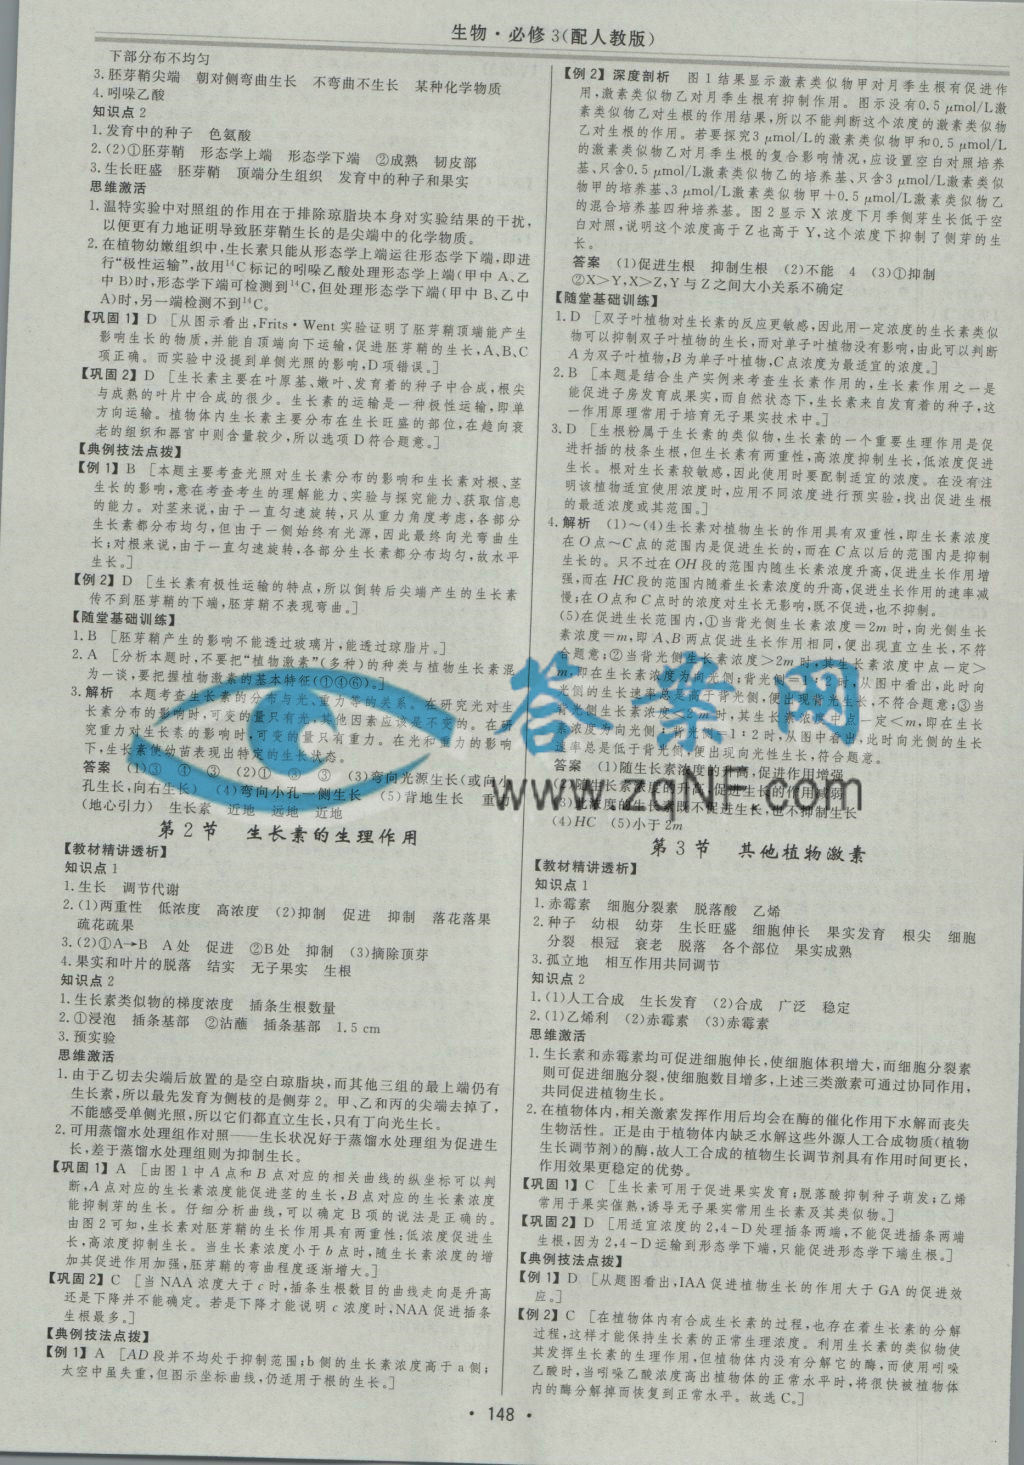 生物·必修3(配人教版)
下部分布不均匀
3.胚芽鞘尖端 朝对侧弯曲生长 不弯曲不生长 某种化学物质
4.吲哚乙酸
知识点2
1.发育中的种子 色氨酸
2.(2)①胚芽鞘 形态学上端 形态学下端 ②成熟 韧皮部
3.生长旺盛 胚芽鞘 顶端分生组织 发育中的种子和果实
思维激活
1.温特实验中对照组的作用在于排除琼脂块本身对实验结果的干扰,
以便更有力地证明导致胚芽鞘生长的是尖端中的化学物质。
2.在植物幼嫩组织中,生长素只能从形态学上端运往形态学下端,即进
行“极性运输”,故用¹⁴C标记的吲哚乙酸处理形态学上端(甲中A、乙
中B)时,形态学下端可检测到¹⁴C,但处理形态学下端(甲中B、乙中
A)时,另一端检测不到¹⁴C。
【巩固1】D [从图示看出,Frits·Went实验证明了胚芽鞘顶端能产生
影响生长的物质,并能自顶端向下运输,促进胚芽鞘的生长,A、B、C
项正确。而实验中没提到单侧光照的影响,D项错误。]
【巩固2】D [生长素主要在叶原基、嫩叶、发育着的种子中合成,根尖
与成熟的叶片中合成的很少。生长素的运输是一种极性运输,即单
方向运输。植物体内生长素主要分布在生长旺盛的部位,在趋向衰
老的组织和器官中则含量较少,所以选项D符合题意。]
【典例技法点拨】
【例1】B [本题主要考查光照对生长素分布的影响和生长素对根、茎
生长的影响,意在考查考生的理解能力、实验与探究能力、获取信息
的能力。对茎来说,由于一直匀速旋转,只从重力角度考虑,各部分
生长素都分布均匀,但由于一侧始终有光源,因此最终向光弯曲生
长;对根来说,由于一直匀速旋转,各部分生长素都分布均匀,故水平
生长。]
【例2】D [生长素有极性运输的特点,所以倒转后尖端产生的生长素
传不到胚芽鞘的下端,胚芽鞘不表现弯曲。]
【随堂基础训练】
1.B [胚芽鞘产生的影响不能透过玻璃片,能透过琼脂片。]
2.A [分析本题时,不要把“植物激素”(多种)的种类与植物生长素混
为一谈,要把握植物激素的基本特征(①④⑥)。]
3.解析 本题考查生长素的分布与光、重力等的关系。在研究光对生
长素分布的影响时,可变的量只有光,其他因素应该是不变的。在研
究重力对生长素的影响时,可变的量只有重力。在光和重力的影响
下,生长素使幼苗表现出特定的生长状态。
答案 (1)③ ④ ③ (2)① ③ ③ (3)弯向光源生长(或向小
孔生长,向右生长) (4)弯向小孔一侧生长 (5)背地生长 重
(地心引力) 生长素 近地 远地 近地
第2节 生长素的生理作用
【教材精讲透析】
知识点1
1.生长 调节代谢
2.(1)两重性 低浓度 高浓度 (2)抑制 促进 抑制 落花落果
疏花疏果
3.(2)①A→B A处 促进 ②B处 抑制 (3)摘除顶芽
4.果实和叶片的脱落 结实 无子果实 生根
知识点2
1.生长素类似物的梯度浓度 插条生根数量
2.①浸泡 插条基部 ②沾蘸 插条基部 1.5 cm
3.预实验
思维激活
1.由于乙切去尖端后放置的是空白琼脂块,而其他三组的最上端仍有
生长素,所以最先发育为侧枝的是侧芽2。甲、乙和丙的尖端去掉了,
不能感受单侧光照,所以它们都直立生长,只有丁向光生长。
2.可用蒸馏水处理组作对照——生长状况好于蒸馏水处理组为促进生
长,差于蒸馏水处理组则为抑制生长。
【巩固1】A [由图1中A点和B点对应的相关曲线的纵坐标可以判
断,A点对应的生长素浓度能促进茎的生长,B点对应的生长素浓度
能抑制芽的生长。仔细分析曲线,可以确定B项的说法是正确的。
由图2可知,生长素对胚芽鞘的生长作用具有两重性;低浓度促进生
长,高浓度抑制生长。当生长素浓度小于b点时,随生长素浓度的增
加其促进作用加强,胚芽鞘的弯曲程度逐渐增大。]
【巩固2】C [当NAA浓度大于c时,插条生根数目的曲线走向是升高
还是下降并不能确定。若是下降才能说明c浓度时,NAA促进插条
生根最多。]
【典例技法点拨】
【例1】A [AD段并不均处于抑制范围;b侧的生长素浓度高于a侧;
太空中虽失重,但图示坐标曲线,仍适用于根的生长。]
【例2】深度剖析 图1结果显示激素类似物甲对月季生根有促进作
用,激素类似物乙对月季生根有抑制作用。图示没有0.5 μmol/L激
素类似物乙对生根的作用结果,所以不能判断这个浓度的激素类似物
乙对生根的作用。若要探究3 μmol/L的激素类似物甲和0.5 μmol/L
的激素类似物乙对月季生根的复合影响情况,应设置空白对照培养
基、只含0.5 μmol/L激素类似物乙的培养基、只含3 μmol/L激素类似
物甲的培养基、3 μmol/L激素类似物甲+0.5 μmol/L激素类似物乙
的混合培养基四种培养基。图2显示X浓度下月季侧芽生长低于空
白对照,说明这个浓度高于Z也高于Y,这个浓度下抑制了侧芽的生
长。
答案 (1)促进生根 抑制生根 (2)不能 4 (3)①抑制
②X>Y,X>Z,Y与Z之间大小关系不确定
【随堂基础训练】
1.D [双子叶植物对生长素的反应更敏感,因此用一定浓度的生长素类似
物可以抑制双子叶植物的生长,而对单子叶植物没有影响,由此可以判断
A为双子叶植物,B为单子叶植物,C点浓度为最适宜的浓度。]
2.B [本题是结合生产实例来考查生长素作用的,生长素作用之一是
能促进子房发育成果实,而自然状态下,生长素来自发育着的种子,这
一作用原理常用于培育无子果实技术中。]
3.D [生根粉属于生长素的类似物,生长素的一个重要生理作用是促
进扦插的枝条生根,但生长素有两重性,高浓度抑制生长,低浓度促进
生长。根对生长素较敏感,因此使用时要配制适宜的浓度。在没有注
明该植物适宜使用浓度时,应用不同浓度进行预实验,找出促进生根
的最适浓度或其范围。]
4.解析 (1)~(4)生长素对植物生长的作用具有双重性,即生长素浓度
在O点~C点的范围内是促进生长的,而在C点以后的范围内是抑制
生长的。只不过在OH段的范围内随生长素浓度升高,促进生长作用增
强,而在HC段的范围内随着生长素浓度的升高,促进生长作用的速率减
慢;在O点和C点时的浓度对生长无影响,既不促进,也不抑制。
(5)在促进生长范围内,①当背光侧生长素浓度=2m时,向光侧生长
素浓度=m,即A、B两点促进生长作用相同,便出现直立生长,不符
合题意;②当背光侧生长素浓度>2m时,其生长素浓度中点一定>
m,即在生长素浓度为向光侧:背光侧=1:2时,从图中看出,此时向
光侧的生长速率总是高于背光侧,便出现背光生长,不符合题意;③当
背光侧生长素浓度<2m时,其生长素浓度中点一定<m,即在生长
素浓度为向光侧:背光侧=1:2时,从图中看出,此时向光侧的生长
速率总是低于背光侧,便出现向光性生长,符合题意。
答案 (1)随生长素浓度的升高,促进作用增强
(2)随生长素浓度的升高,促进生长的作用减弱
(3)此浓度的生长素既不促进生长,也不抑制生长
(4)HC (5)小于2m
第3节 其他植物激素
【教材精讲透析】
知识点1
1.赤霉素 细胞分裂素 脱落酸 乙烯
2.种子 幼根 幼芽 生长旺盛 细胞伸长 果实发育 根尖 细胞
分裂 根冠 衰老 脱落 各个部位 果实成熟
3.孤立地 相互作用共同调节
知识点2
1.(1)人工合成 生长发育 (2)合成 广泛 稳定
2.(1)乙烯利 (2)赤霉素 (3)赤霉素
思维激活
1.生长素和赤霉素均可促进细胞伸长,使细胞体积增大,而细胞分裂素
则可促进细胞分裂,使细胞数目增多,上述三类激素可通过协同作用,
共同促进植物生长。
2.在植物体内,相关激素发挥作用后均会在酶的催化作用下水解而丧失
生物活性。正是由于植物体内缺乏水解这些外源人工合成物质(植物
生长调节剂)的酶,故人工合成的植物生长调节剂具有作用时间更长,
作用效果更稳定的优势。
【巩固1】C [生长素可用于促进果实发育;脱落酸抑制种子萌发;乙烯
常用于果实催熟,诱导无子果实常用生长素及其类似物。]
【巩固2】D [用适宜浓度的2,4-D处理插条两端,不能促进插条两端
生根,因为2,4-D运输到形态学下端,只能促进形态学下端生根。]
【典例技法点拨】
【例1】D [从题图看出,IAA促进植物生长的作用大于GA的促进效
应。]
【例2】C [在植物体内有合成生长素的过程,也存在着生长素的分解
过程,这样才能保持生长素的正常生理浓度。利用生长素的类似物使
其发挥生长素的生理作用,但植物体内没有分解它的酶,而使用吲哚
乙酸时,当吲哚乙酸浓度高出植物体的正常水平时,将很快被植物体
内的酶分解掉而恢复到正常水平。故选C。]
答案网
www.zqNF.com
· 148 ·